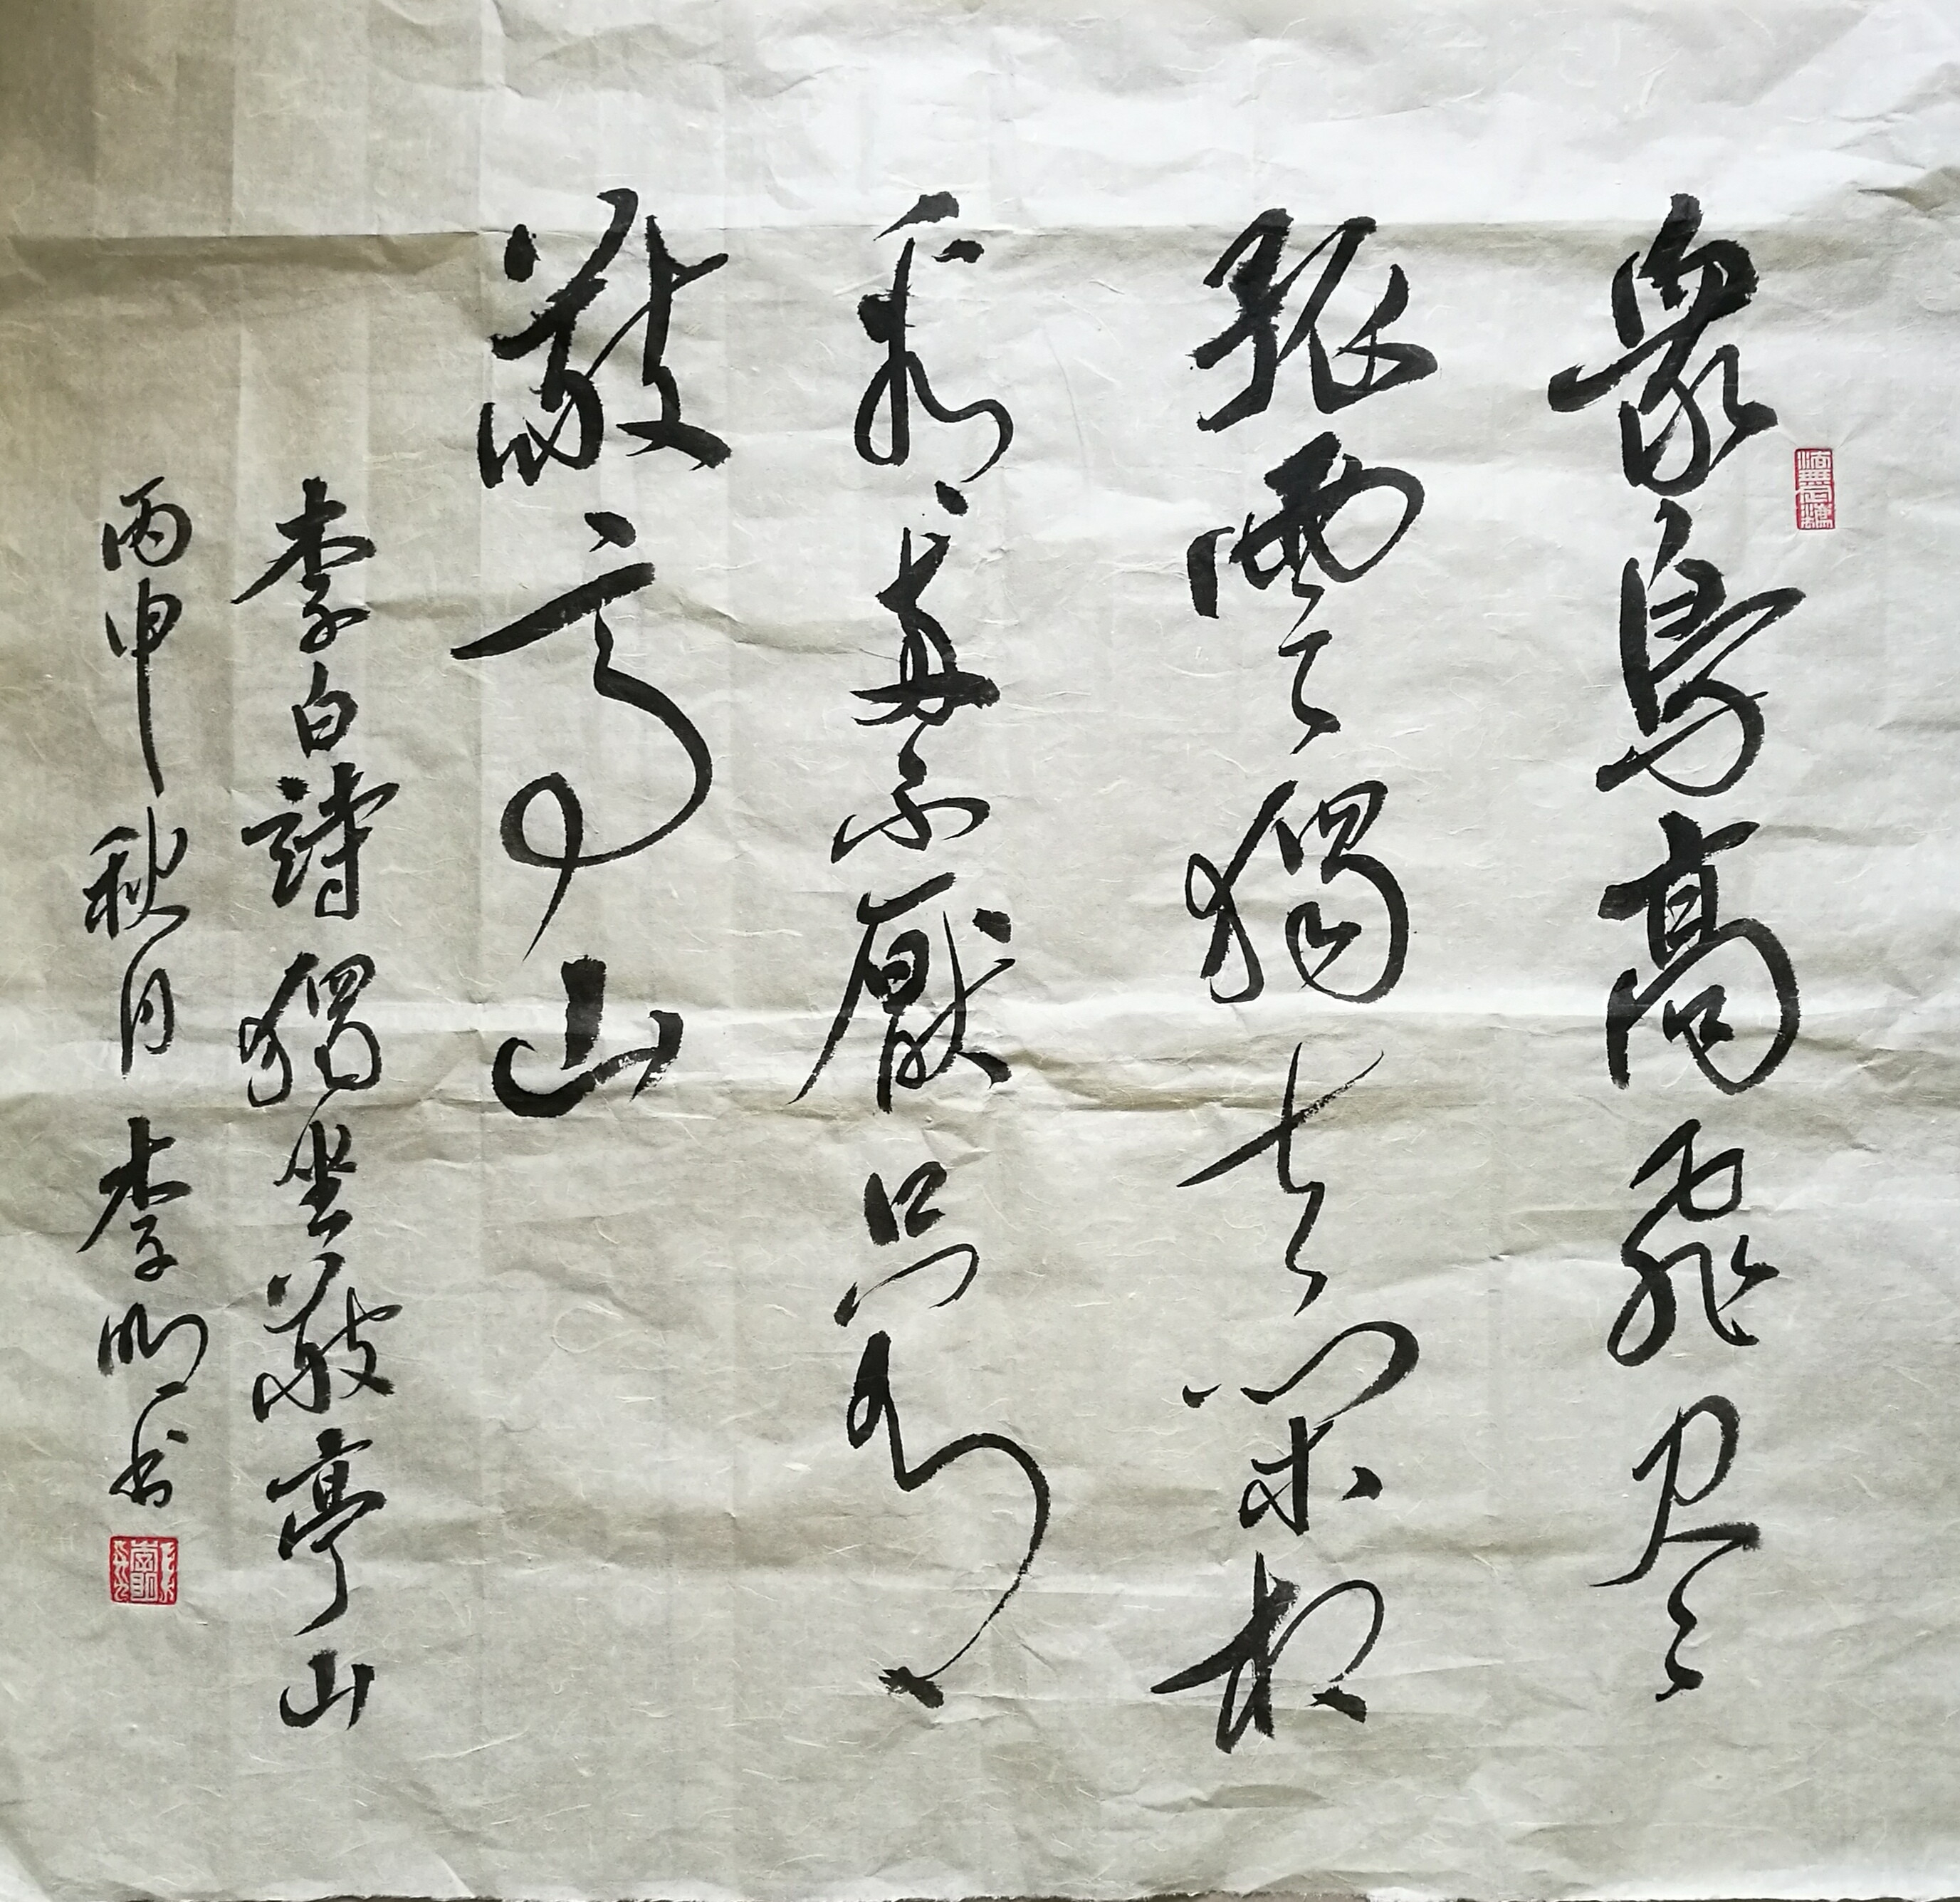 衆鳥高飛尽
孤雲獨去閑相
看兩不厭只有
敬亭山
李白詩獨坐敬亭山
丙申秋月李明书